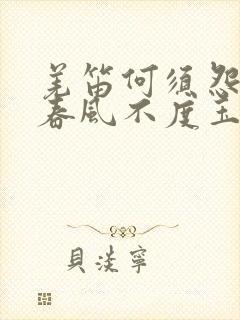 羌笛何須怨
春風不度玉
貝淡寧